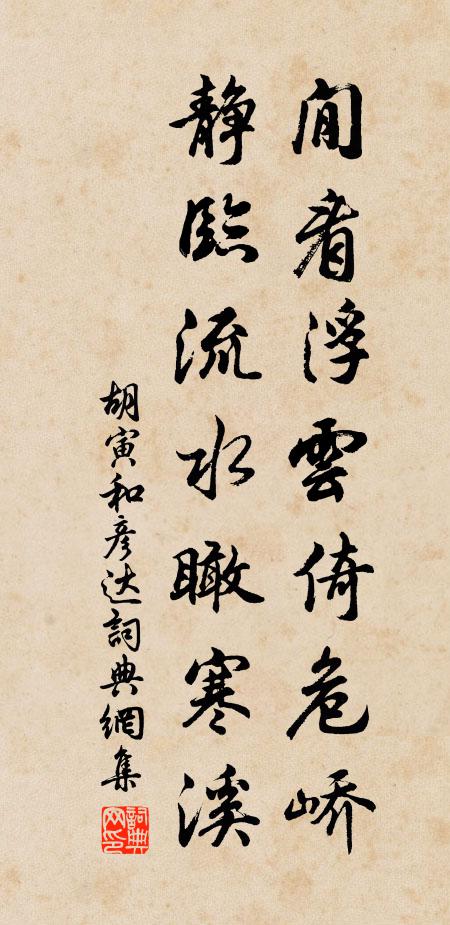 閒看浮雲倚危嶠
静臨流水瞰寒溪
胡寅和彦达詞典網集
詞典網印